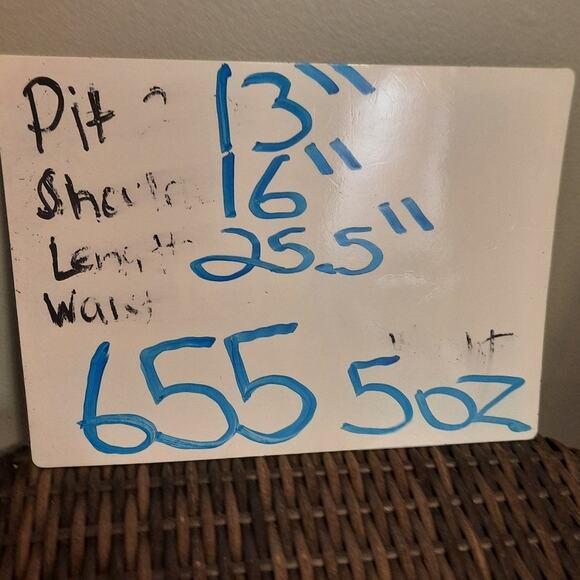 Pit 13"
16"
Length 25.5"
Waist
655 5oz